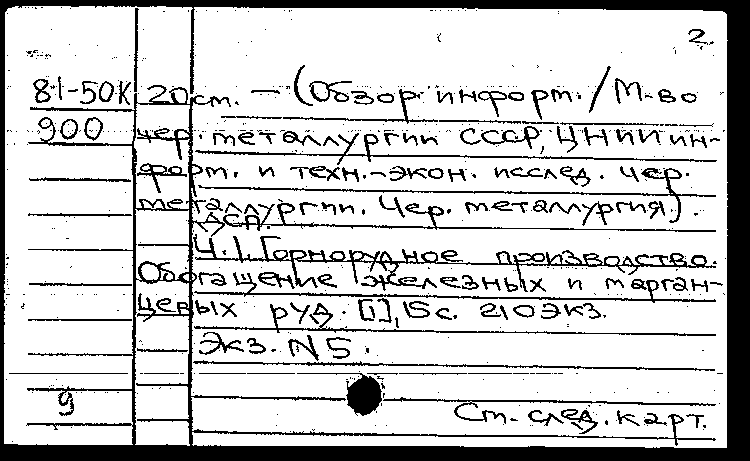 2.
81-50К 20 см. — (Обзор. информ. / М-во
900 чер. металлургии СССР, ЦНИИ ин-
форм. и техн.-экон. исслед. чер.
металлургии. Чер. металлургия).
ДСП.
Ч.1. Горнорудное производство.
Обогащение железных и марган-
цевых руд. [1], 15 с. 210 экз.
Экз. N 5.
9
См. след. карт.